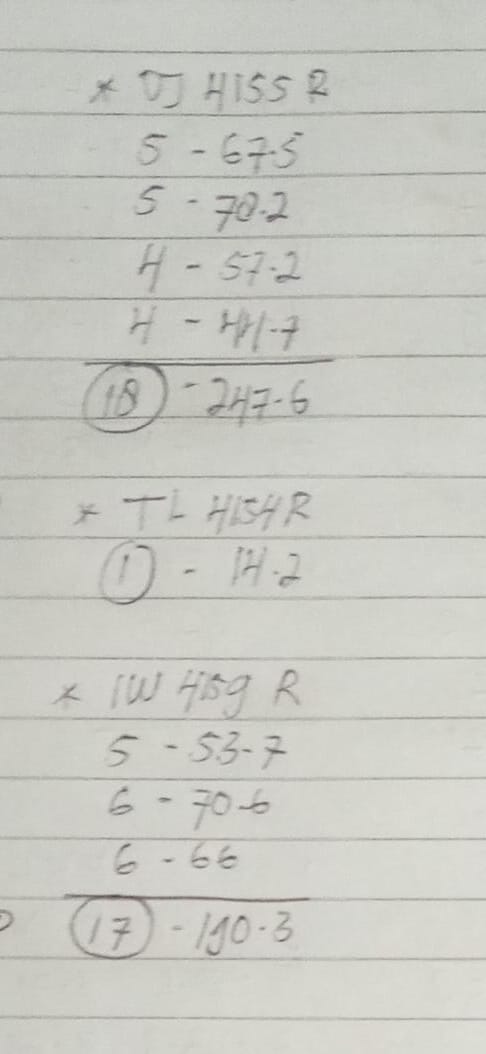 * 4155 R
5 - 67.5
5 - 78.2
4 - 57.2
4 - 44.7
18 - 247.6
* TL 4154 R
1 - 14.2
* IW 4159 R
5 - 53.7
6 - 70.6
6 - 66
17 - 190.3